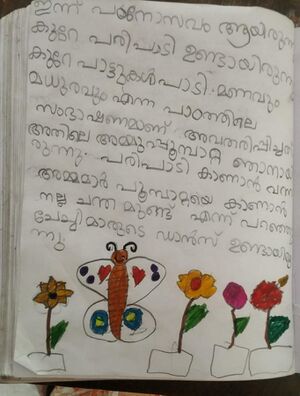 ഇന്ന് പഠനോസവം ആയിരുന്ന
കുറേ പരിപാടി ഉണ്ടായിരുന്ന
കുറേ പാട്ടുകൾ പാടി. മണവും
മധുരവും എന്ന പാഠത്തിലെ
സംഭാഷണമാണ് അവതരിപ്പിച്ചത്
അതിലെ അമ്മുപൂമ്പാറ്റ ഞാനായി
രുന്നു. പരിപാടി കാണാൻ വന്ന
അമ്മമാർ പൂമ്പാറ്റയെ കാണാൻ
നല്ല ചന്തമുണ്ട് എന്ന് പറഞ്ഞു
ചേച്ചിമാരുടെ ഡാൻസ് ഉണ്ടായിരു
ന്നു.